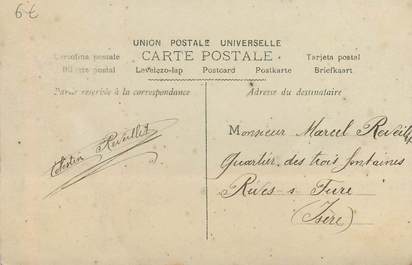 6€
UNION POSTALE UNIVERSELLE
CARTE POSTALE
Cartolina postale
Tarjeta postal
postal Levelezo-lap Postcard Postkarte Briefkaart
Partie réservée à la correspondance
Adresse du destinataire
Réveillet
Monsieur Marcel Reveill
Quartier des trois fontaines
Rives-s Fure
(Isère)